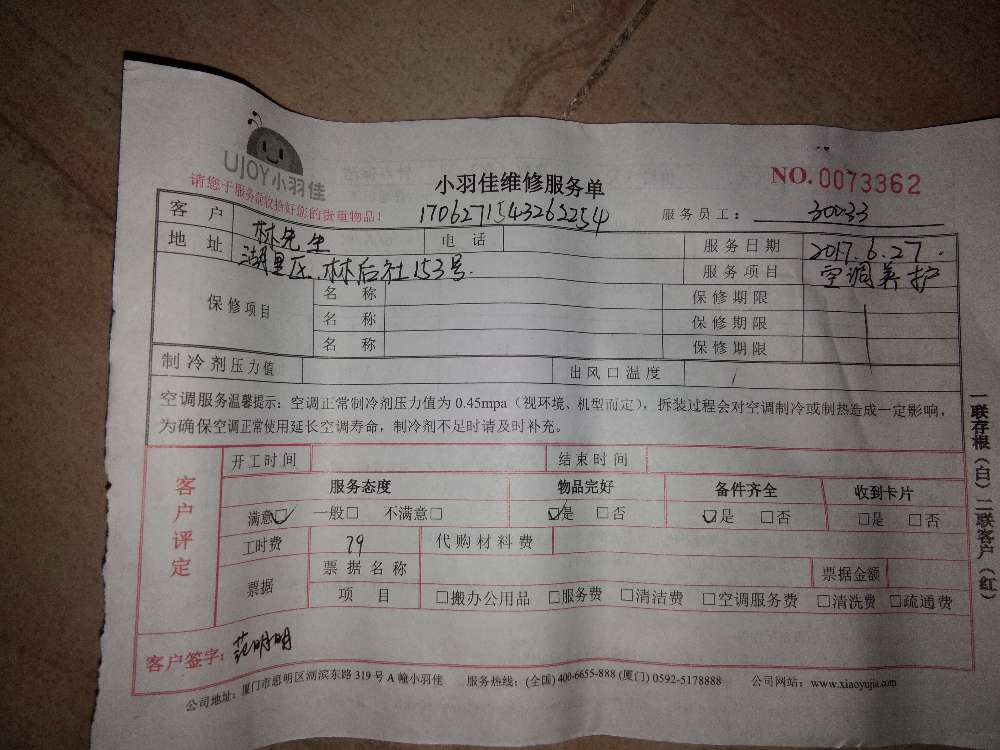 UJOY小羽佳
请您于服务前收拾好您的贵重物品!
小羽佳维修服务单
NO.0073362
170627154326S254
服务员工: 30033
客户 林先生 电话 服务日期 2017.6.27.
地址 湖里区.林后社153号. 服务项目 空调养护
保修项目 名称 保修期限
名称 保修期限
名称 保修期限
制冷剂压力值 出风口温度 /
空调服务温馨提示: 空调正常制冷剂压力值为 0.45mpa (视环境、机型而定), 拆装过程会对空调制冷或制热造成一定影响,
为确保空调正常使用延长空调寿命, 制冷剂不足时请及时补充。
客户评定
开工时间 结束时间
服务态度 物品完好 备件齐全 收到卡片
满意☑ 一般□ 不满意□ ☑是 □否 ☑是 □否 □是 □否
工时费 79 代购材料费
票据 票据名称 票据金额
项目 □搬办公用品 □服务费 □清洁费 □空调服务费 □清洗费 □疏通费
客户签字: 范明明
公司地址: 厦门市思明区湖滨东路 319 号 A 幢小羽佳 服务热线: (全国) 400-6655-888 (厦门) 0592-5178888 公司网站: www.xiaoyujia.com
一联存根(白) 二联客户(红)